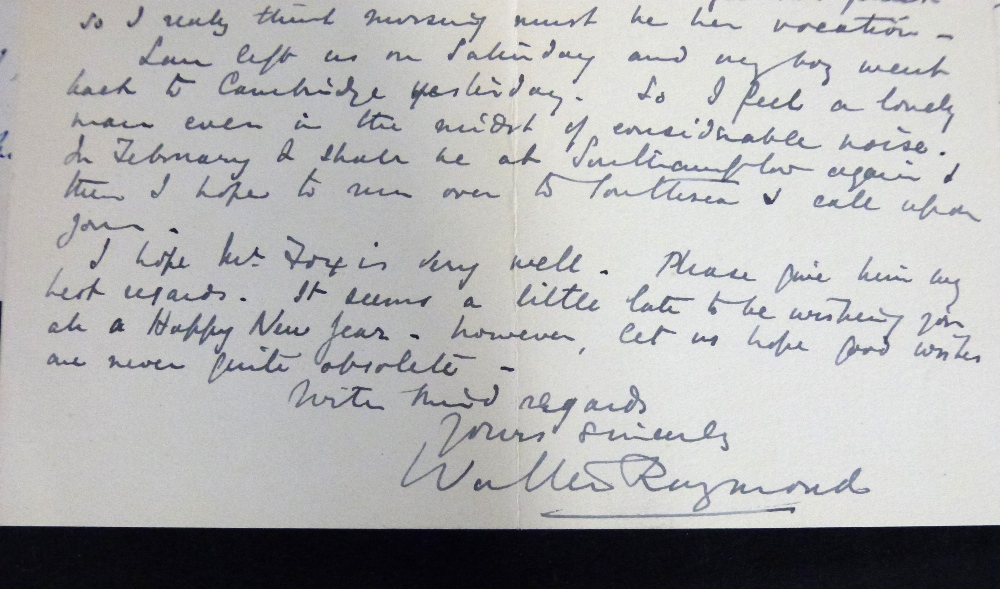 so I really think nursing must be her vocation –
left us on Saturday and my boy went
back to Cambridge yesterday. So I feel a lonely
man even in the midst of considerable noise.
In February I shall be at Southampton again &
then I hope to run over to Southsea & call upon
you.
I hope Mr. Fox is very well. Please give him my
best regards. It seems a little late to be wishing you
all a Happy New Year – however, let us hope good wishes
are never quite obsolete –
With kind regards
Yours sincerely
Walter Raymond